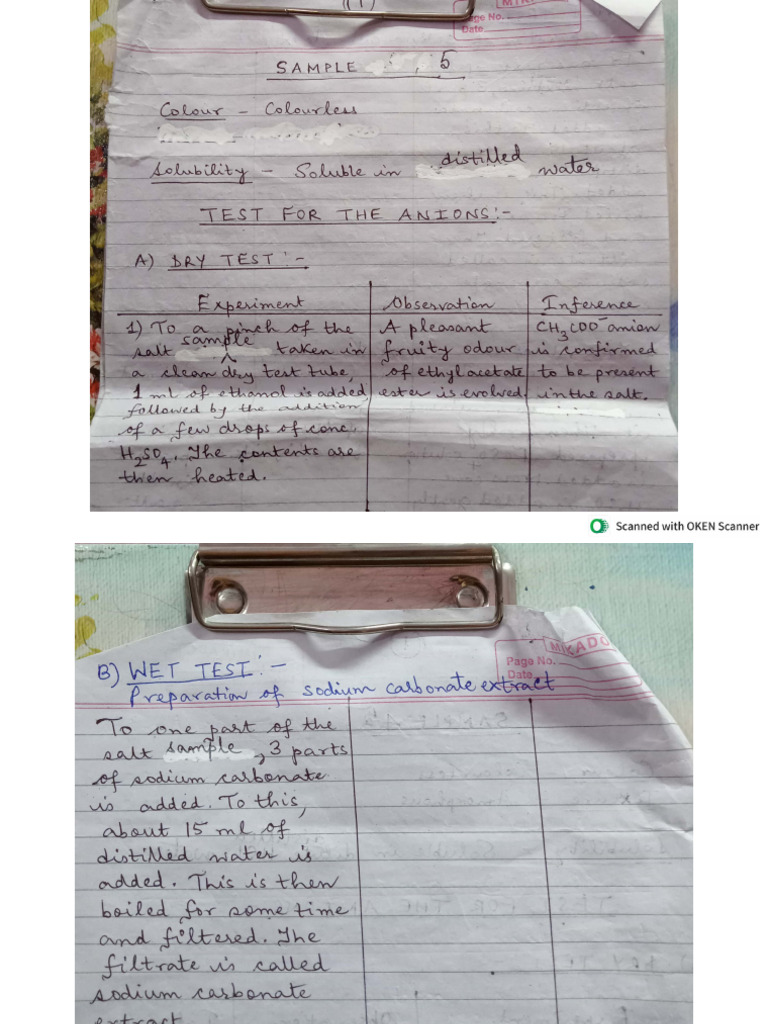 (1)
Page No.
Date
SAMPLE 5
Colour - Colourless
Solubility - Soluble in distilled water
TEST FOR THE ANIONS:-
A) DRY TEST:-
Experiment
1) To a pinch of the
salt sample taken in
a clean dry test tube,
1 ml of ethanol is added
followed by the addition
of a few drops of conc.
H2SO4. The contents are
then heated.
Observation
A pleasant
fruity odour
of ethylacetate
ester is evolved.
Inference
CH3COO⁻ anion
is confirmed
to be present
in the salt.
Scanned with OKEN Scanner
MIKADO
Page No.
Date
B) WET TEST:-
Preparation of sodium carbonate extract
To one part of the
salt sample, 3 parts
of sodium carbonate
is added. To this,
about 15 ml of
distilled water is
added. This is then
boiled for some time
and filtered. The
filtrate is called
sodium carbonate
extract